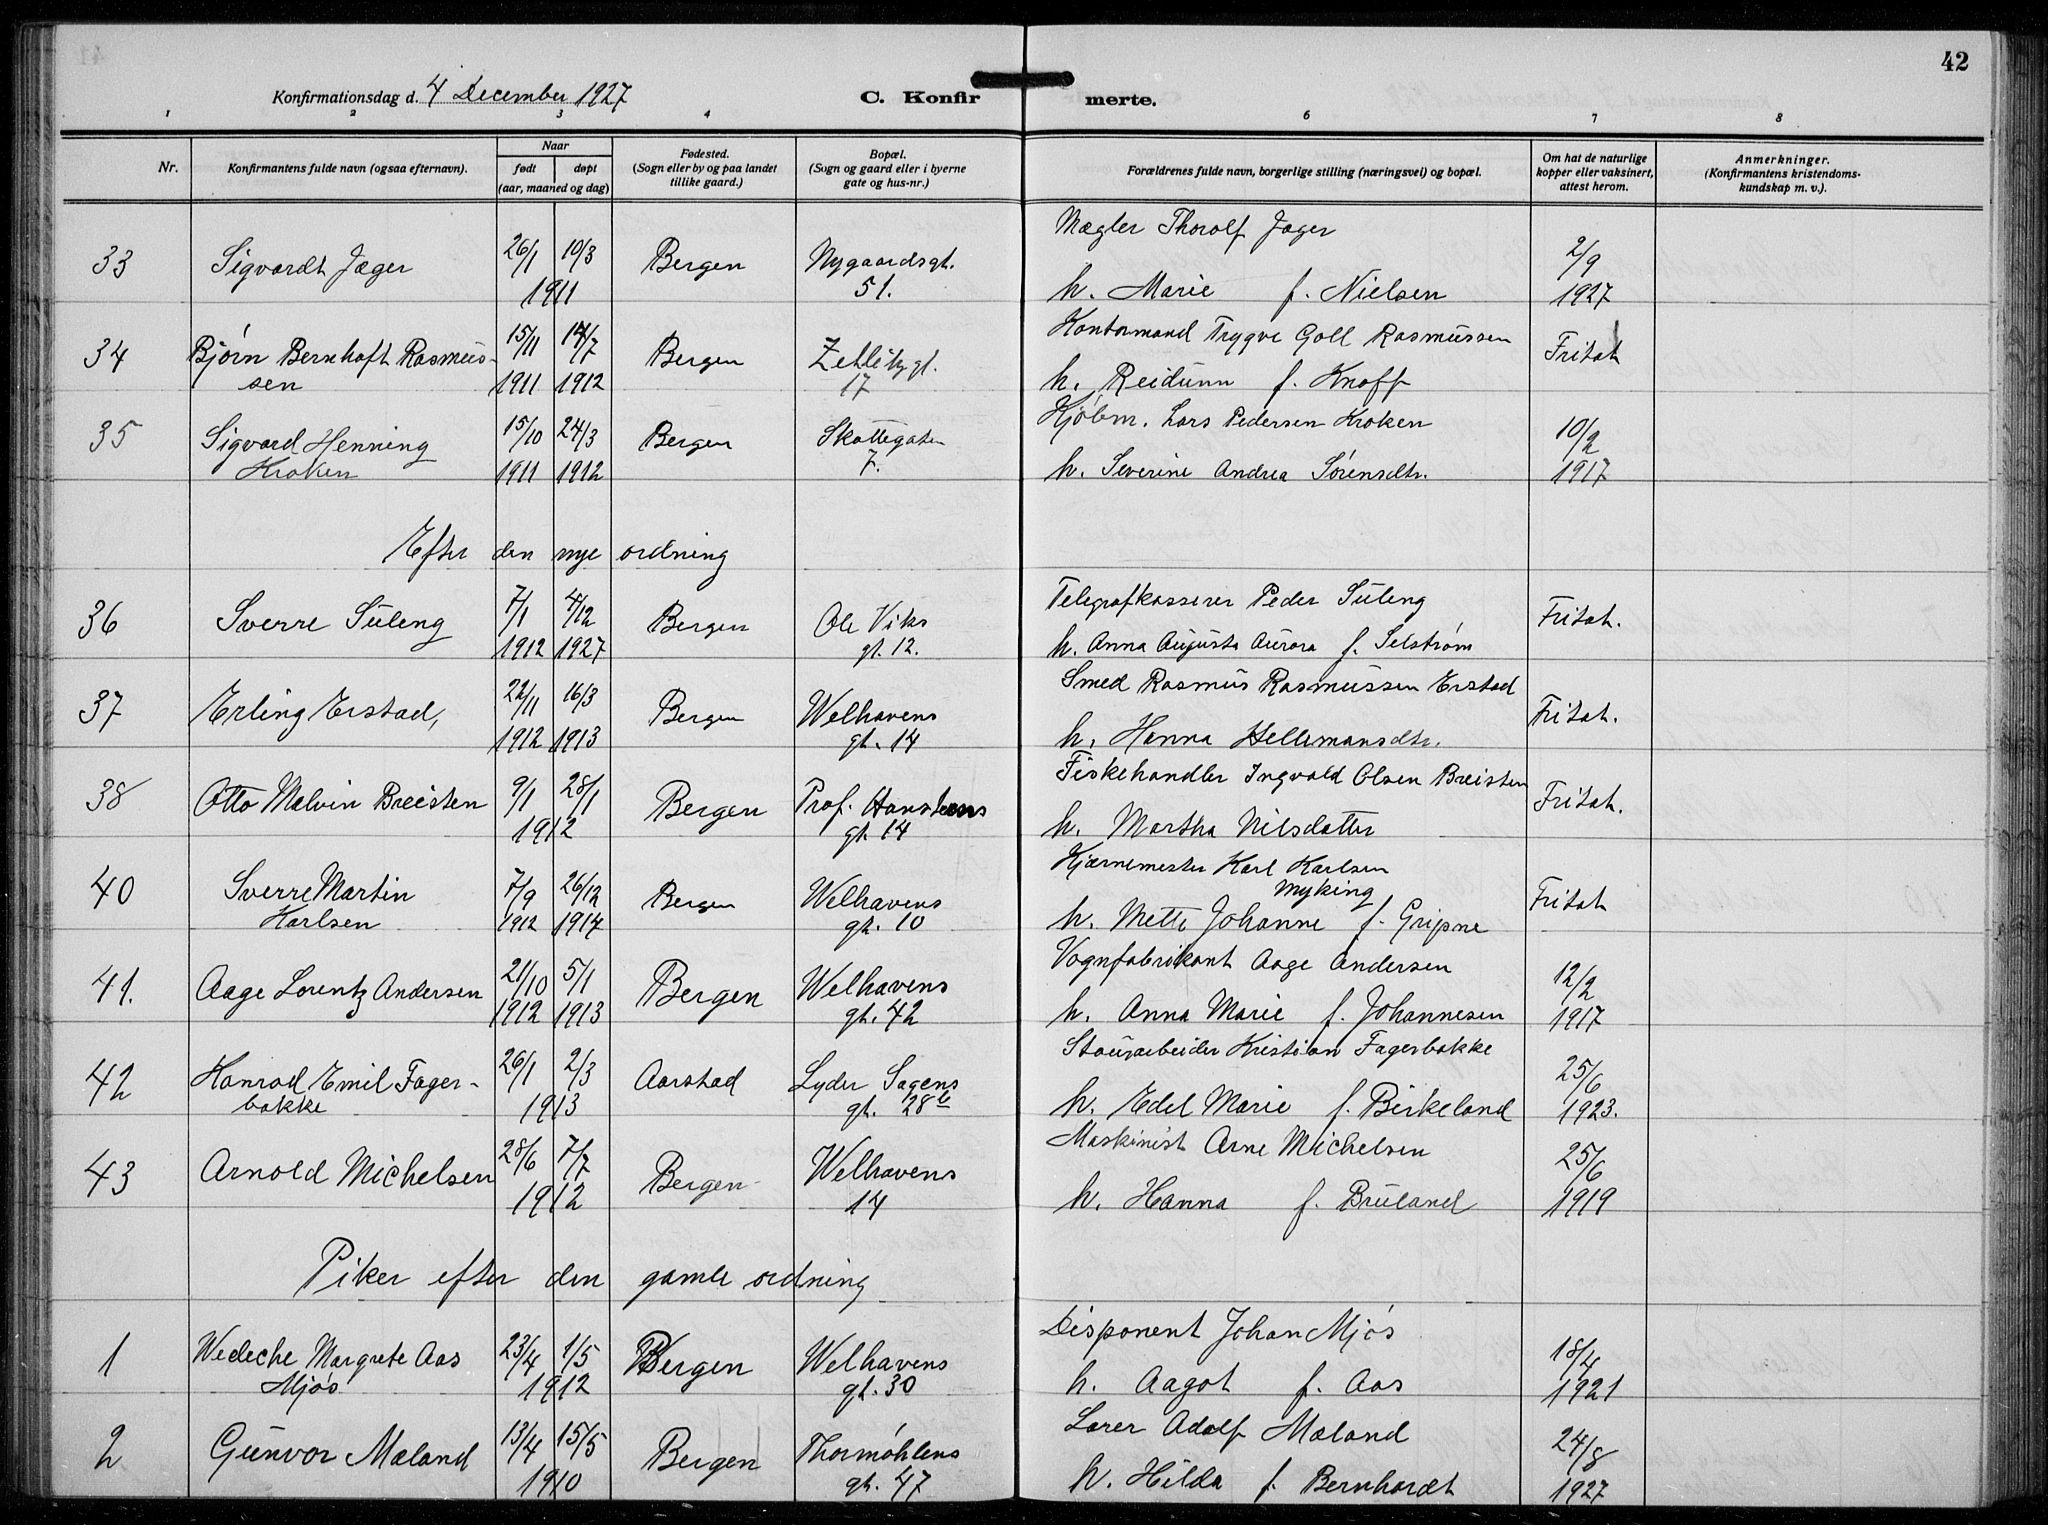 42
Konfirmationsdag d. 4 December 1927
C. Konfirmerte.
1 2 3 4 5 6 7 8
Nr.
Konfirmantens fulde navn (ogsaa efternavn).
Naar
født døpt
(aar, maaned og dag)
Fødested.
(Sogn eller by og paa landet
tillike gaard.)
Bopæl.
(Sogn og gaard eller i byerne
gate og hus-nr.)
Forældrenes fulde navn, borgerlige stilling (næringsvei) og bopæl.
Om hat de naturlige
kopper eller vaksinert,
attest herom.
Anmerkninger.
(Konfirmantens kristendoms-
kundskap m. v.).
33 Sigvardt Jæger 26/1 10/3 1911 Bergen Nygaardsgt. 51.
Mægler Thorolf Jæger
h. Marie f. Nielsen
2/9 1927
34 Bjørn Bernhoft Rasmus-
sen 15/11 1911 14/7 1912 Bergen Zetlitzgt. 17
Kontormand Trygve Goll Rasmussen
h. Reidunn f. Knoff
Fritat
35 Sigvard Henning
Kroken 15/10 1911 24/3 1912 Bergen Skottegaten 7.
Kjøbm. Lars Pedersen Kroken
h. Severine Andrea Sørensdtr.
10/2 1917
Efter den nye ordning
36 Sverre Süleng 7/1 1912 4/12 1927 Bergen Ole Viks
gt. 12.
Telegrafkasserer Peder Süleng
h. Anna Augusta Aurora f. Selstrøm
Fritat.
37 Erling Erstad, 22/11 1912 16/3 1913 Bergen Welhavens
gt. 14
Smed Rasmus Rasmussen Erstad
h. Hanna Hellemansdtr.
Fritat.
38 Otto Malvin Breisten 9/1 28/1 1912 Bergen Prof. Hansteens
gt. 14
Fiskehandler Ingvald Olsen Breisten
h. Martha Nilsdatter
Fritat.
40 Sverre Martin
Karlsen 7/9 1912 26/12 1917 Bergen Welhavens
gt. 10
Kjærnemester Karl Karlsen
Myking
h. Mette Johanne f. Gripne
Fritat
41. Aage Lorentz Andersen 21/10 1912 5/1 1913 Bergen Welhavens
gt. 42
Vognfabrikant Aage Andersen
h. Anna Marie f. Johannesen
12/2 1917
42 Konrad Emil Fager-
bakke 26/1 2/3 1913 Aarstad Lyder Sagens
gt. 28b
Stuerarbeider Kristian Fagerbakke
h. Edel Marie f. Birkeland
25/6 1923.
43 Arnold Michelsen 28/6 7/7 1912 Bergen Welhavens
14
Maskinist Arne Michelsen
h. Hanna f. Brüland
25/6 1919
Piker efter den gamle ordning
1 Wedeche Margrete Aas
Mjøs 23/4 1/5 1912 Bergen Welhavens
gt. 30
Disponent Johan Mjøs
h. Aagot f. Aas
18/4 1921
2 Günvor Mæland 13/4 15/5 1910 Bergen Thormøhlens
gt. 47
Lærer Adolf Mæland
h. Hilda f. Bernhardt
24/8 1927